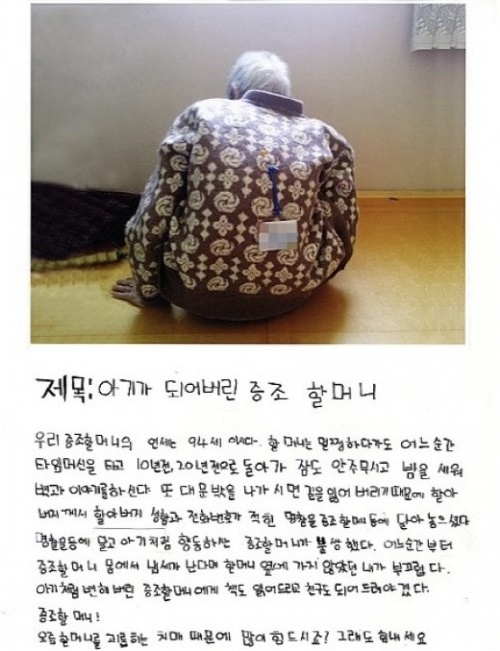 제목:아기가 되어버린 증조 할머니
우리 증조할머니의 연세는 94세 이시다. 할머니는 멀쩡하다가도 어느순간
타임머신을 타고 10년전, 20년전으로 돌아가 잠도 안주무시고 밤을 세워
벽과 이야기를하신다. 또 대문밖을 나가시면 길을 잃어버리기때문에 할아
버지께서 할아버지 성함과 전화번호가 적힌 명찰을 증조할머니 등에 달아 놓으셨다
명찰을등에 달고 아기처럼 행동하는 증조할머니가 불쌍했다. 어느순간부터
증조할머니 몸에서 냄새가 난다며 할머니 옆에 가지 않았던 내가 부끄럽다.
아기처럼 변해버린 증조할머니에게 책도 읽어드리고 친구도 되어드려야겠다.
증조할머니!
요즘할머니를 괴롭히는 치매 때문에 많이 힘드시죠? 그래도 힘내세요